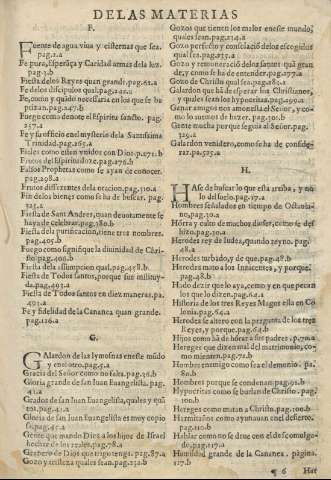 DE LAS MATERIAS
F.
Fuente de agua viua y cisternas que sea.
pag.2.a
Fe pura, Esperãça y Caridad armas de la luz.
pag.3.b
Fiesta delos Reyes quan grande. pag.62.a
Fe de los discipulos qual.pag.
Fe, como y quádo necessaria en los que se bu
pag.247.b
Fuego como denote el Espiritu sancto. pag.
257.a
Fe y su officio en el mysterio de la Santissima
Trinidad.pag.265.a
Fiales como esten vnidos con Dios.p.271.b
Frutos del Espiritu do ze.pag.276.b
Falsos Prophetas como se ayan de conocer.
pag.298.a
Frutos differentes dela oracion.pag.310.a
Fin delos bienes como se ha de buscar. pag.
325.a
Fiesta de Sant Andres, quan deuotamente se
haya de celebrar.pag.380.b
Fiesta dela purificacion, tiene tres nombres.
pag.405.b
Fuego como signifique la diuinidad de Chri-
sto.pag.406.b
Fiesta dela assumpcion qual.pag.458.b
Fiesta de Todos santos, porque fue instituy-
da.pag.403.a
Fiesta de Todos santos en diez maneras.pa.
491.a
Fe y fidelidad de la Cananea quan grande.
pag.126.a
G.
Galardon de las lymosnas eneste múdo
y en el otro.pag.5.a
Gracia del Señor como no falta.pag.38.b
Gloria grande de san Iuan Euangelista. pag.
41.a
Grados de san Iuan Euangelista, quales y quã
tos.pag.41.a
Gloria de san Iuan Euangelista es muy copio
sa.pag.45.a
Gente que mando Dios a los hijos de Israel
hechar de los reales.pag.78.a
Granero de Dios que trigo tenga. pag.87.a
Gozo y tristeza quales sean.pag.232.b
Gozos que tienen los malos eneste mundo,
quales sean.pag.234.a
Gozo perfecto y consolació delos escogidos
qual sea.pag.235.a
Gozo y remuneració delos santos quã gran
de, y como se ha de entender.pag.277.a
Gozo de Christo qual sea.pag.282.a
Galardon que ha de esperar los Christianos,
y quales sean los justos.pag.290.a
Ganar amigos nos amonesta el Señor, y co-
mo lo auemos de hazer.pag.301.b
Gente mucha porque seguia al Señor. pag.
Galardon venidero, como se ha de conside-
rar.pa.525.a
H.
HAse de buscar lo que esta arriba, y no
lo del suelo.pag.17.a
Hombres señalados en tiempo de Octauia-
no,pag.30.a
Hórra y culto de muchos dioses, como se des
truyo.pag.30.a
Herodes rey de Iudea, quando reyno. pag.
Herodes turbado, y de que.pag.48.b
Herodes mato a los Innocentes, y porque.
pag.48.b
Hado dezir que lo aya, como y en que pecan
los que lo dizen.pag.64.a
Historia de los tres Reyes Magos esta en Co
lonia.pag.64.a
Herodes se altero con la pregunta de los tres
Reyes, y porque.pag.64.b
Hijos como hã de hórar a sus padres.p.70.a
Hereges que dizen mal del matrimonio, co-
mo mienten.pag.72.b
Hombre enemigo como sea el demonio. pa.
80.b
Hombres porque se condenan.pag.95.b
Hypocritas como se burlan de Christo. pag.
100.b
Hereges como matan a Christo.pag.100.b
Hermitaños como ayunauan en el desierto.
pag.110.b
Hablar como no se deue con el descomulga-
do.pag.117.b
Humildad grande de la Cananea. pagina.
127.b
¶ 6 Haz